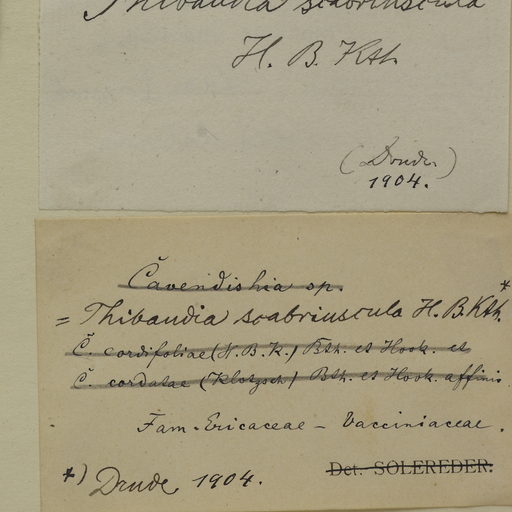 Thibaudia scabriuscula
H. B. Kth.
(Drude.)
1904.
Cavendishia sp. *
= Thibaudia scabriuscula H. B. Kth.
C. cordifoliae (H. B. K.) Bth. et Hook. et
C. cordatae (Klotzsch) Bth. et Hook. affinis.
Fam. Ericaceae - Vacciniaceae.
*) Drude 1904.
Det. SOLEREDER.